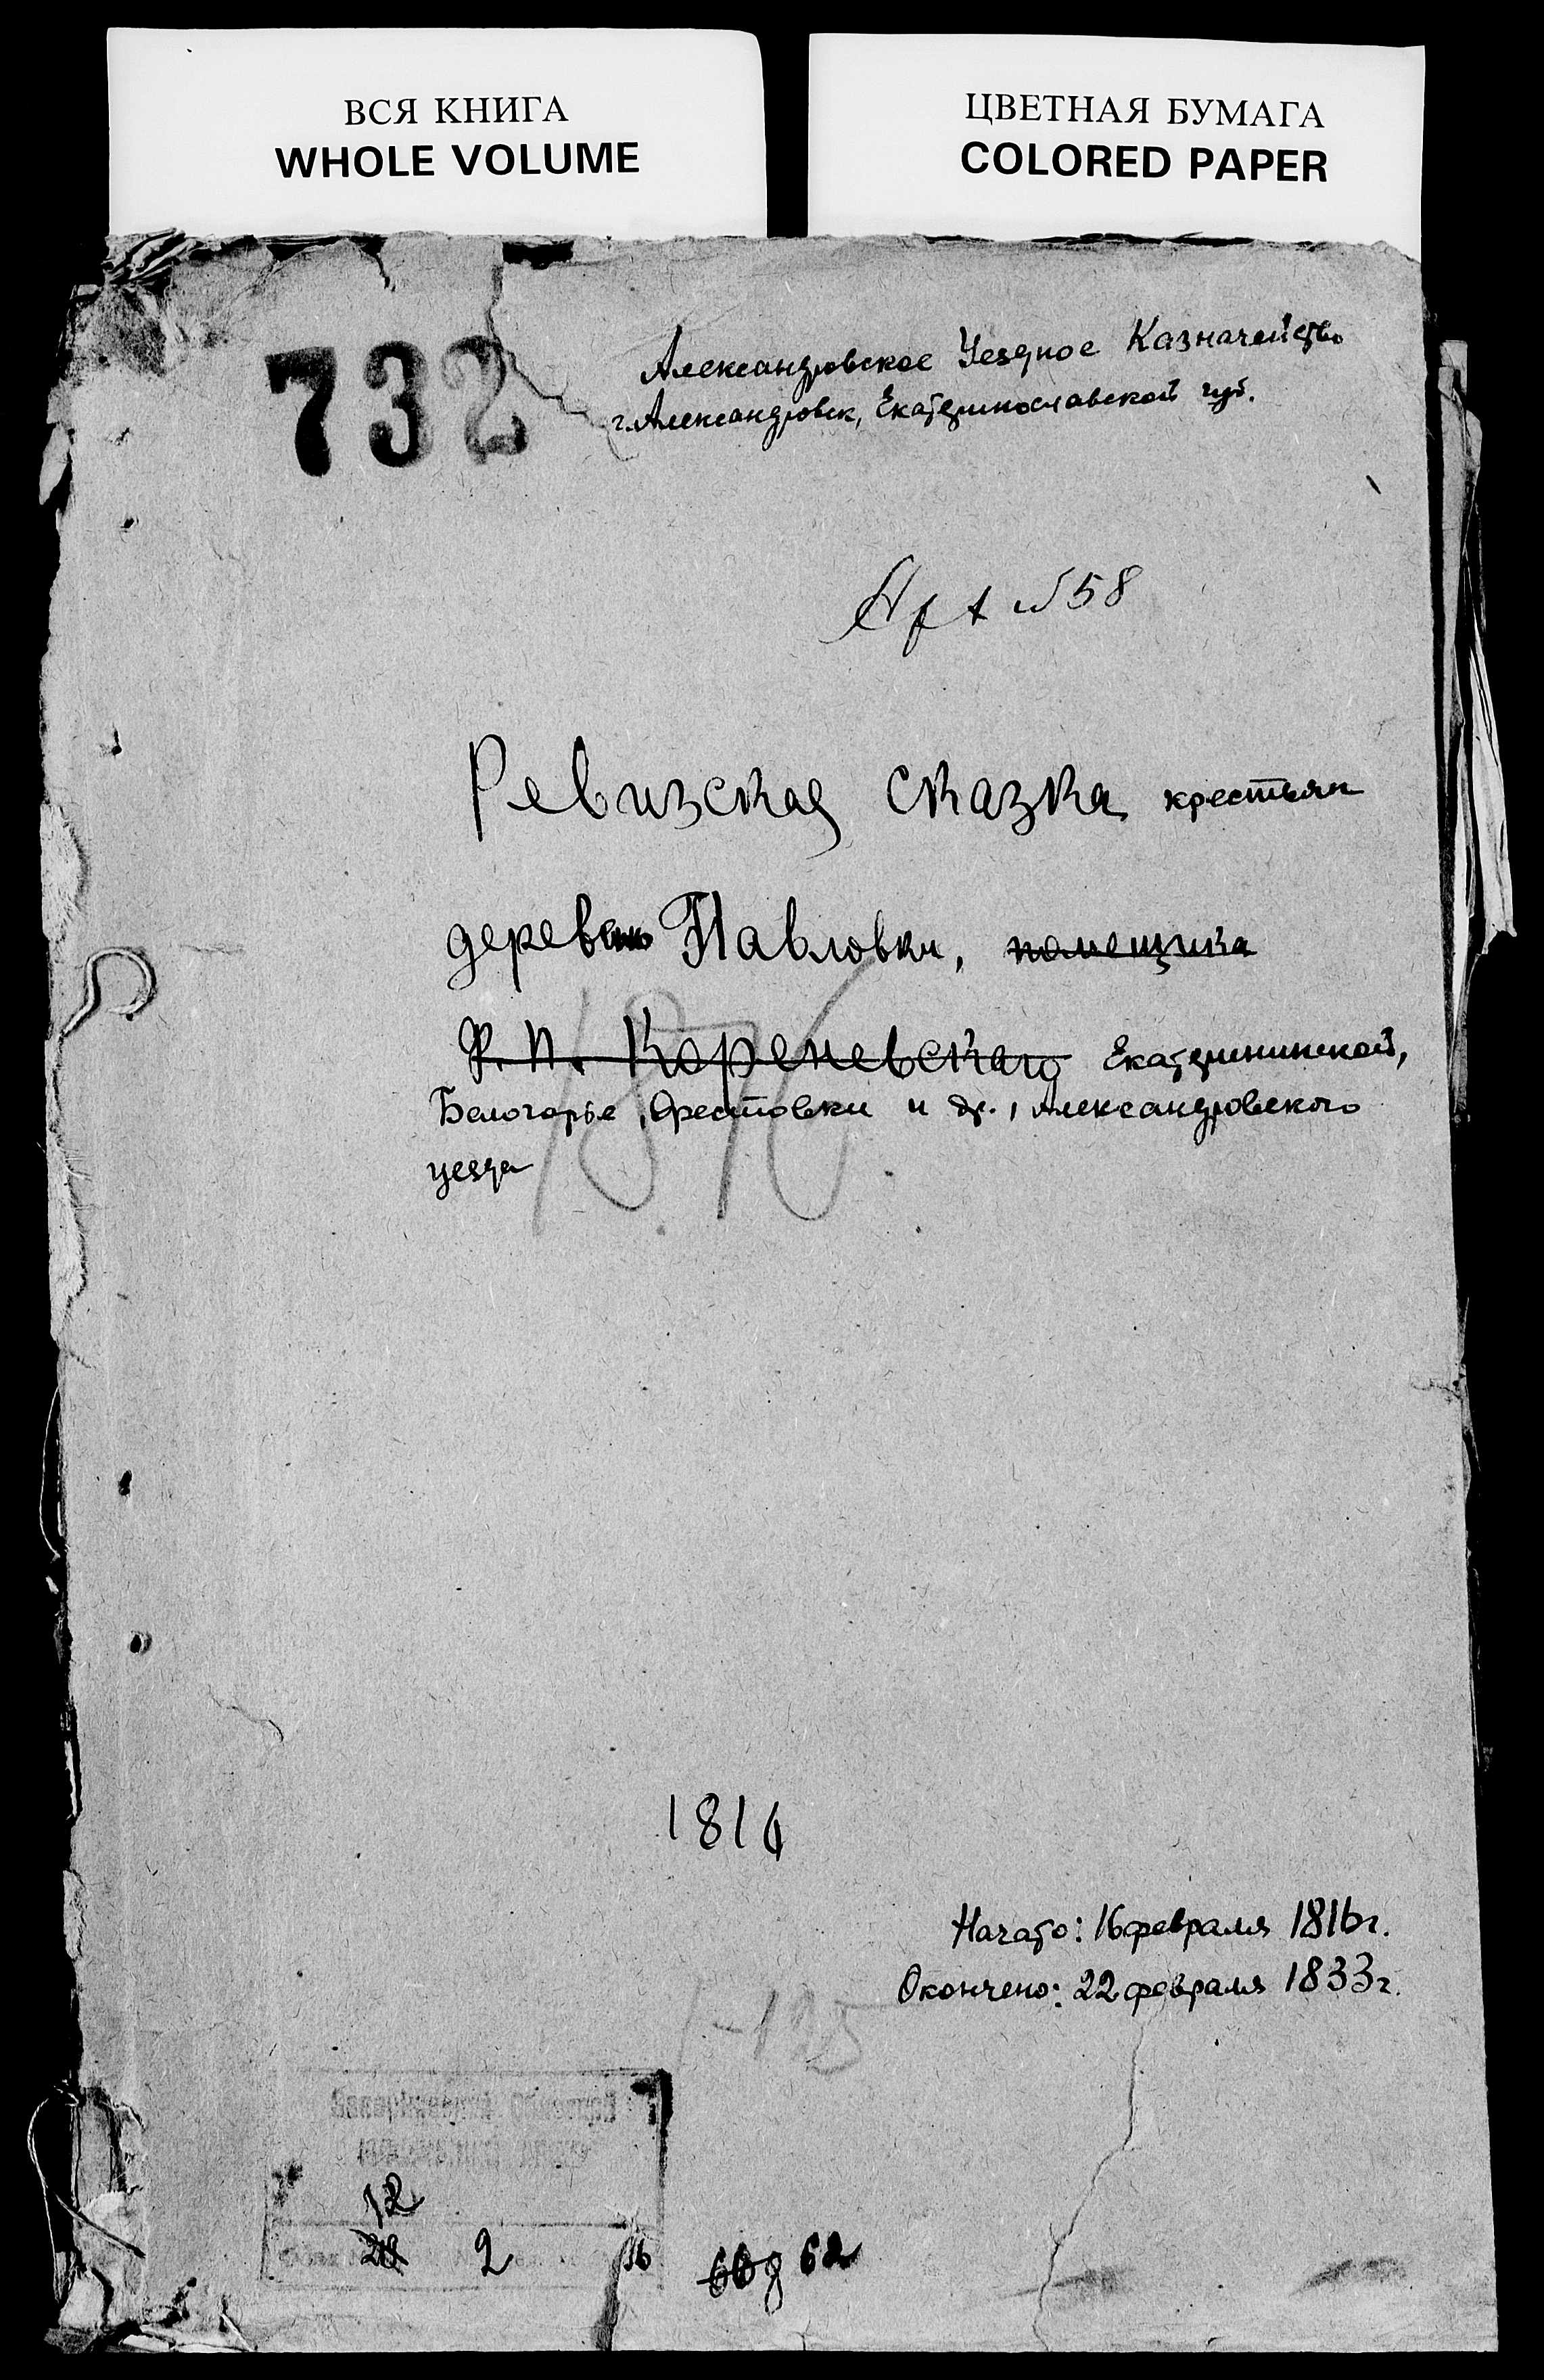 ВСЯ КНИГА
WHOLE VOLUME
ЦВЕТНАЯ БУМАГА
COLORED PAPER
732
Александровское Уездное Казначейство
г. Александровск, Екатеринославской губ.
№58
Ревизская сказка крестьян
деревень Павловки, помещика
Ф. П. Кореневскаго Екатерининской,
Белогорье, Орестовки и др., Александровского
уезда
1816
1816
Начато: 16 февраля 1816 г.
Окончено: 22 февраля 1833 г.
1-125
12
2
16
62